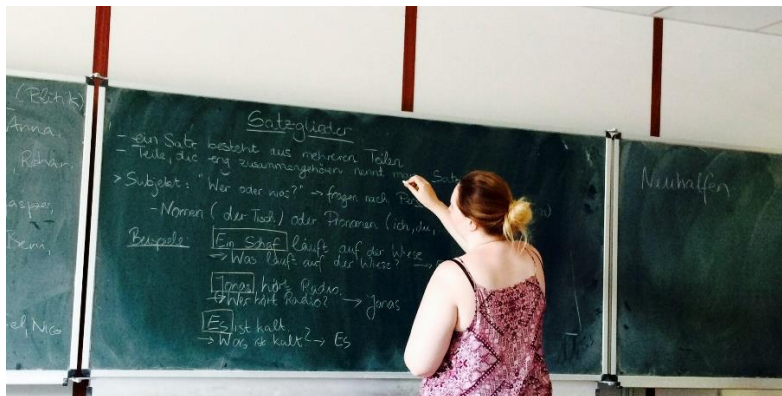 (Politik)
Anna,
Satzglieder
- ein Satz besteht aus mehreren Teilen
- Teile, die eng zusammengehören nennt man Satz
> Subjekt: "Wer oder was?" → fragen nach Pers
- Nomen (der Tisch) oder Pronomen (ich, du,
Beispiele Ein Schaf läuft auf der Wiese
→ Was läuft auf der Wiese? →
Jonas hört Radio.
→ Wer hört Radio? → Jonas
el, Nico
Es ist kalt.
→ Was ist kalt? → Es